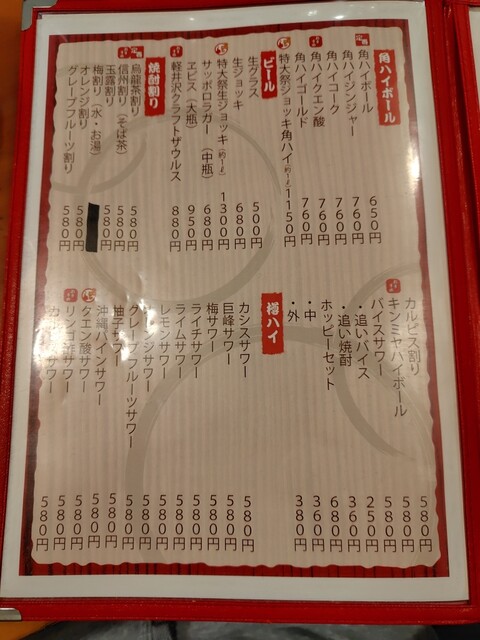 角ハイボール
定番
角ハイボール 650円
角ハイジンジャー 760円
角ハイコーク 760円
角ハイクエン酸 760円
角ハイゴールド 760円
特大祭ジョッキ角ハイ(約1ℓ) 1150円
ビール
生グラス 500円
生ジョッキ 680円
特大祭生ジョッキ(約1ℓ) 1300円
サッポロラガー(中瓶) 680円
ヱビス(大瓶) 950円
軽井沢クラフトザウルス 880円
焼酎割り
定番
烏龍茶割り 580円
信州割り(そば茶) 580円
玉露割り 580円
梅割り(水・お湯)
オレンジ割り 580円
グレープフルーツ割り 580円
カルピス割り 580円
キンミヤハイボール 580円
バイスサワー 580円
・追いバイス 250円
・追い焼酎 360円
ホッピーセット 680円
・中 360円
・外 380円
樽ハイ
カシスサワー 580円
巨峰サワー 580円
梅サワー 580円
ライチサワー 580円
ライムサワー 580円
レモンサワー 580円
オレンジサワー 580円
グレープフルーツサワー 580円
柚子サワー 580円
沖縄パインサワー 580円
クエン酸サワー 580円
リンゴ酢サワー 580円
サワー 580円